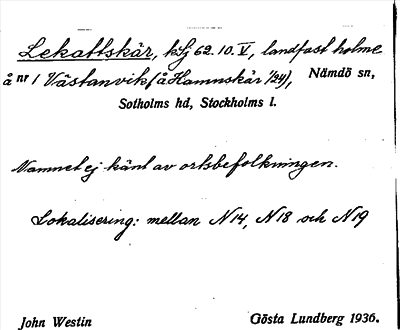 Lekattskär, klj 62.10.V, landfast holme
å nr 1 Västanvik (å Hamnskär 1/24), Nämdö sn,
Sotholms hd, Stockholms l.
Namnet ej känt av ortsbefolkningen.
Lokalisering: mellan N14, N18 och N19
John Westin Gösta Lundberg 1936.